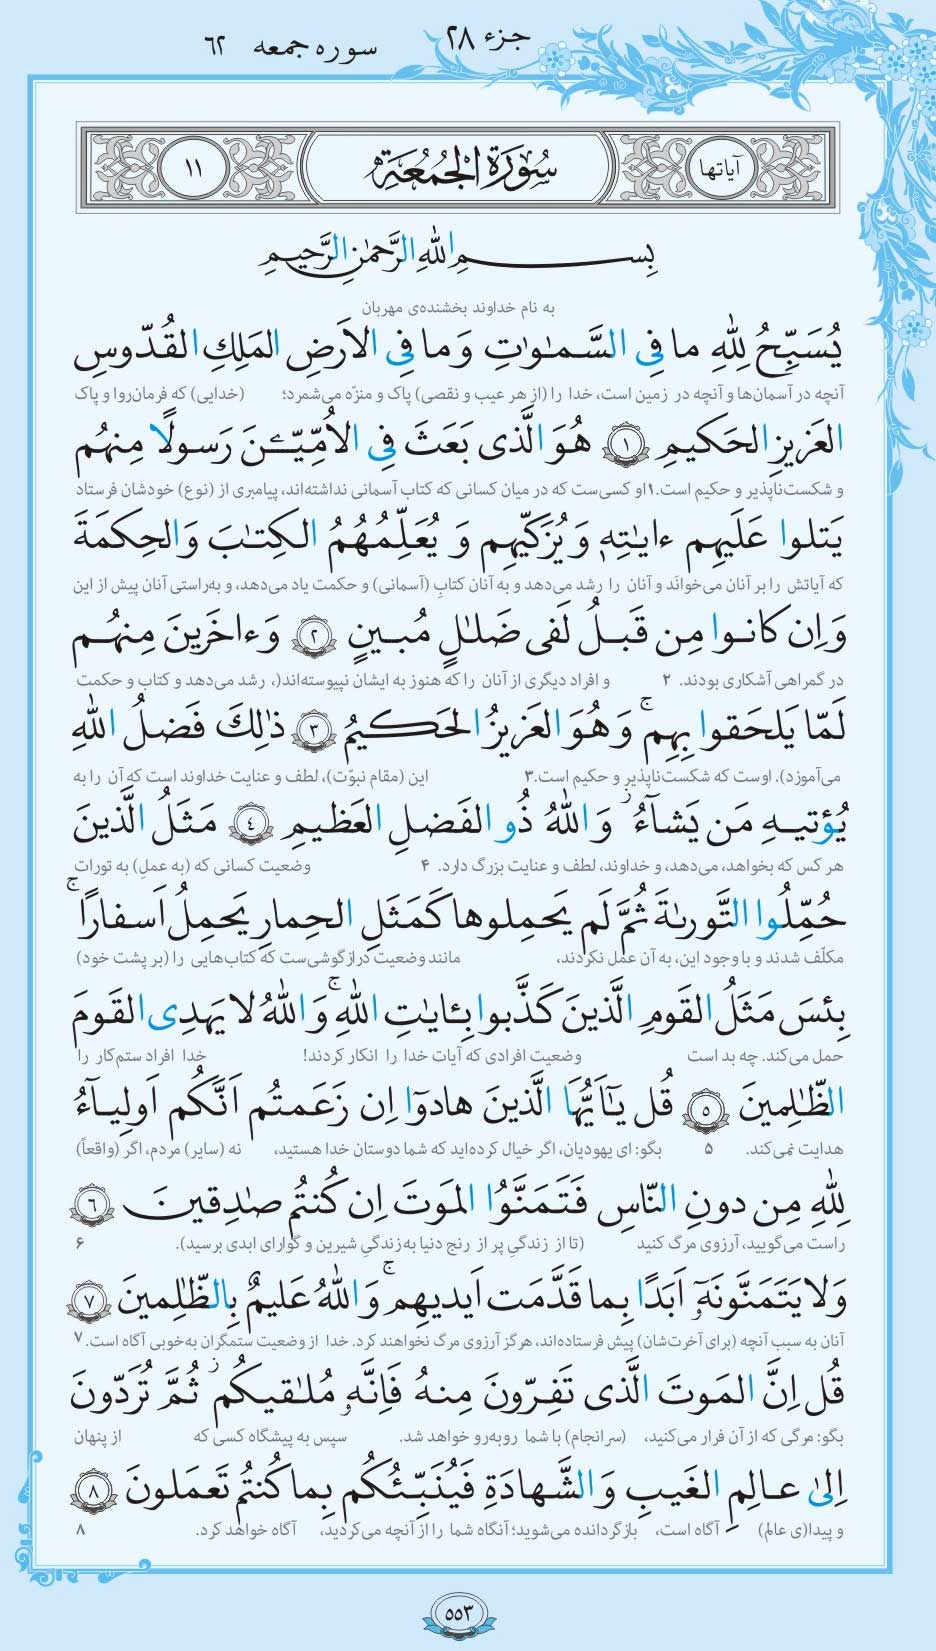 جزء ۲۸
سوره جمعه ۶۲
آیاتها
سُورَةُ الجُمُعَةِ
۱۱
بِسمِ اللهِ الرَّحمٰنِ الرَّحیمِ
به نام خداوند بخشنده‌ی مهربان
یُسَبِّحُ لِلّٰهِ ما فِی السَّمٰوٰتِ وَ ما فِی الاَرضِ المَلِكِ القُدّوسِ
آنچه در آسمان‌ها و آنچه در زمین است، خدا را (از هر عیب و نقصی) پاک و منزّه می‌شمرد؛ (خدایی) که فرمان‌روا و پاک
العَزیزِ الحَکیمِ ﴿۱﴾ هُوَ الَّذی بَعَثَ فِی الاُمِّیّـٖنَ رَسولًا مِنهُم
و شکست‌ناپذیر و حکیم است.۱ او کسی‌ست که در میان کسانی که کتاب آسمانی نداشته‌اند، پیامبری از (نوع) خودشان فرستاد
یَتلوا عَلَیهِم ءایٰتِهٖ وَ یُزَکّیهِم وَ یُعَلِّمُهُمُ الکِتٰبَ وَ الحِکمَةَ
که آیاتش را بر آنان می‌خوانَد و آنان را رشد می‌دهد و به آنان کتابِ (آسمانی) و حکمت یاد می‌دهد، و به‌راستی آنان پیش از این
وَ اِن کانوا مِن قَبلُ لَفی ضَلٰلٍ مُبینٍ ﴿۲﴾ وَ ءاخَرینَ مِنهُم
در گمراهی آشکاری بودند. ۲ و افراد دیگری از آنان را که هنوز به ایشان نپیوسته‌اند(، رشد می‌دهد و کتاب و حکمت
لَمّا یَلحَقوا بِهِم ۚ وَ هُوَ العَزیزُ الحَکیمُ ﴿۳﴾ ذٰلِكَ فَضلُ اللهِ
می‌آموزد). اوست که شکست‌ناپذیر و حکیم است.۳ این (مقام نبوّت)، لطف و عنایت خداوند است که آن را به
یُؤتیهِ مَن یَشآءُ ۚ وَ اللهُ ذُو الفَضلِ العَظیمِ ﴿۴﴾ مَثَلُ الَّذینَ
هر کس که بخواهد، می‌دهد، و خداوند، لطف و عنایت بزرگ دارد. ۴ وضعیت کسانی که (به عملِ) به تورات
حُمِّلُوا التَّورىٰةَ ثُمَّ لَم یَحمِلوها کَمَثَلِ الحِمارِ یَحمِلُ اَسفارًا ۚ
مکلّف شدند و با وجود این، به آن عمل نکردند، مانند وضعیت درازگوشی‌ست که کتاب‌هایی را (بر پشت خود)
بِئسَ مَثَلُ القَومِ الَّذینَ کَذَّبوا بِـٔایٰتِ اللهِ ۚ وَ اللهُ لا یَهدِی القَومَ
حمل می‌کند. چه بد است وضعیت افرادی که آیات خدا را انکار کردند! خدا افراد ستم‌کار را
الظّٰلِمینَ ﴿۵﴾ قُل یٰۤاَیُّهَا الَّذینَ هادوۤا اِن زَعَمتُم اَنَّکُم اَولِیآءُ
هدایت نمی‌کند. ۵ بگو: ای یهودیان، اگر خیال کرده‌اید که شما دوستان خدا هستید، نه (سایر) مردم، اگر (واقعاً)
لِلّٰهِ مِن دونِ النّاسِ فَتَمَنَّوُا المَوتَ اِن کُنتُم صٰدِقینَ ﴿۶﴾
راست می‌گویید، آرزوی مرگ کنید (تا از زندگیِ پر از رنج دنیا به زندگیِ شیرین و گوارای ابدی برسید). ۶
وَ لا یَتَمَنَّونَهٗۤ اَبَدًا بِما قَدَّمَت اَیدیهِم ۚ وَ اللهُ عَلیمٌ بِالظّٰلِمینَ ﴿۷﴾
آنان به سبب آنچه (برای آخرت‌شان) پیش فرستاده‌اند، هرگز آرزوی مرگ نخواهند کرد. خدا از وضعیت ستمگران به‌خوبی آگاه است.۷
قُل اِنَّ المَوتَ الَّذی تَفِرّونَ مِنهُ فَاِنَّهٗ مُلٰقیکُم ۖ ثُمَّ تُرَدّونَ
بگو: مرگی که از آن فرار می‌کنید، (سرانجام) با شما روبه‌رو خواهد شد. سپس به پیشگاه کسی که از پنهان
اِلیٰ عالِمِ الغَیبِ وَ الشَّهادَةِ فَیُنَبِّئُکُم بِما کُنتُم تَعمَلونَ ﴿۸﴾
و پیدا(ی عالم) آگاه است، بازگردانده می‌شوید؛ آنگاه شما را از آنچه می‌کردید، آگاه خواهد کرد. ۸
۵۵۳